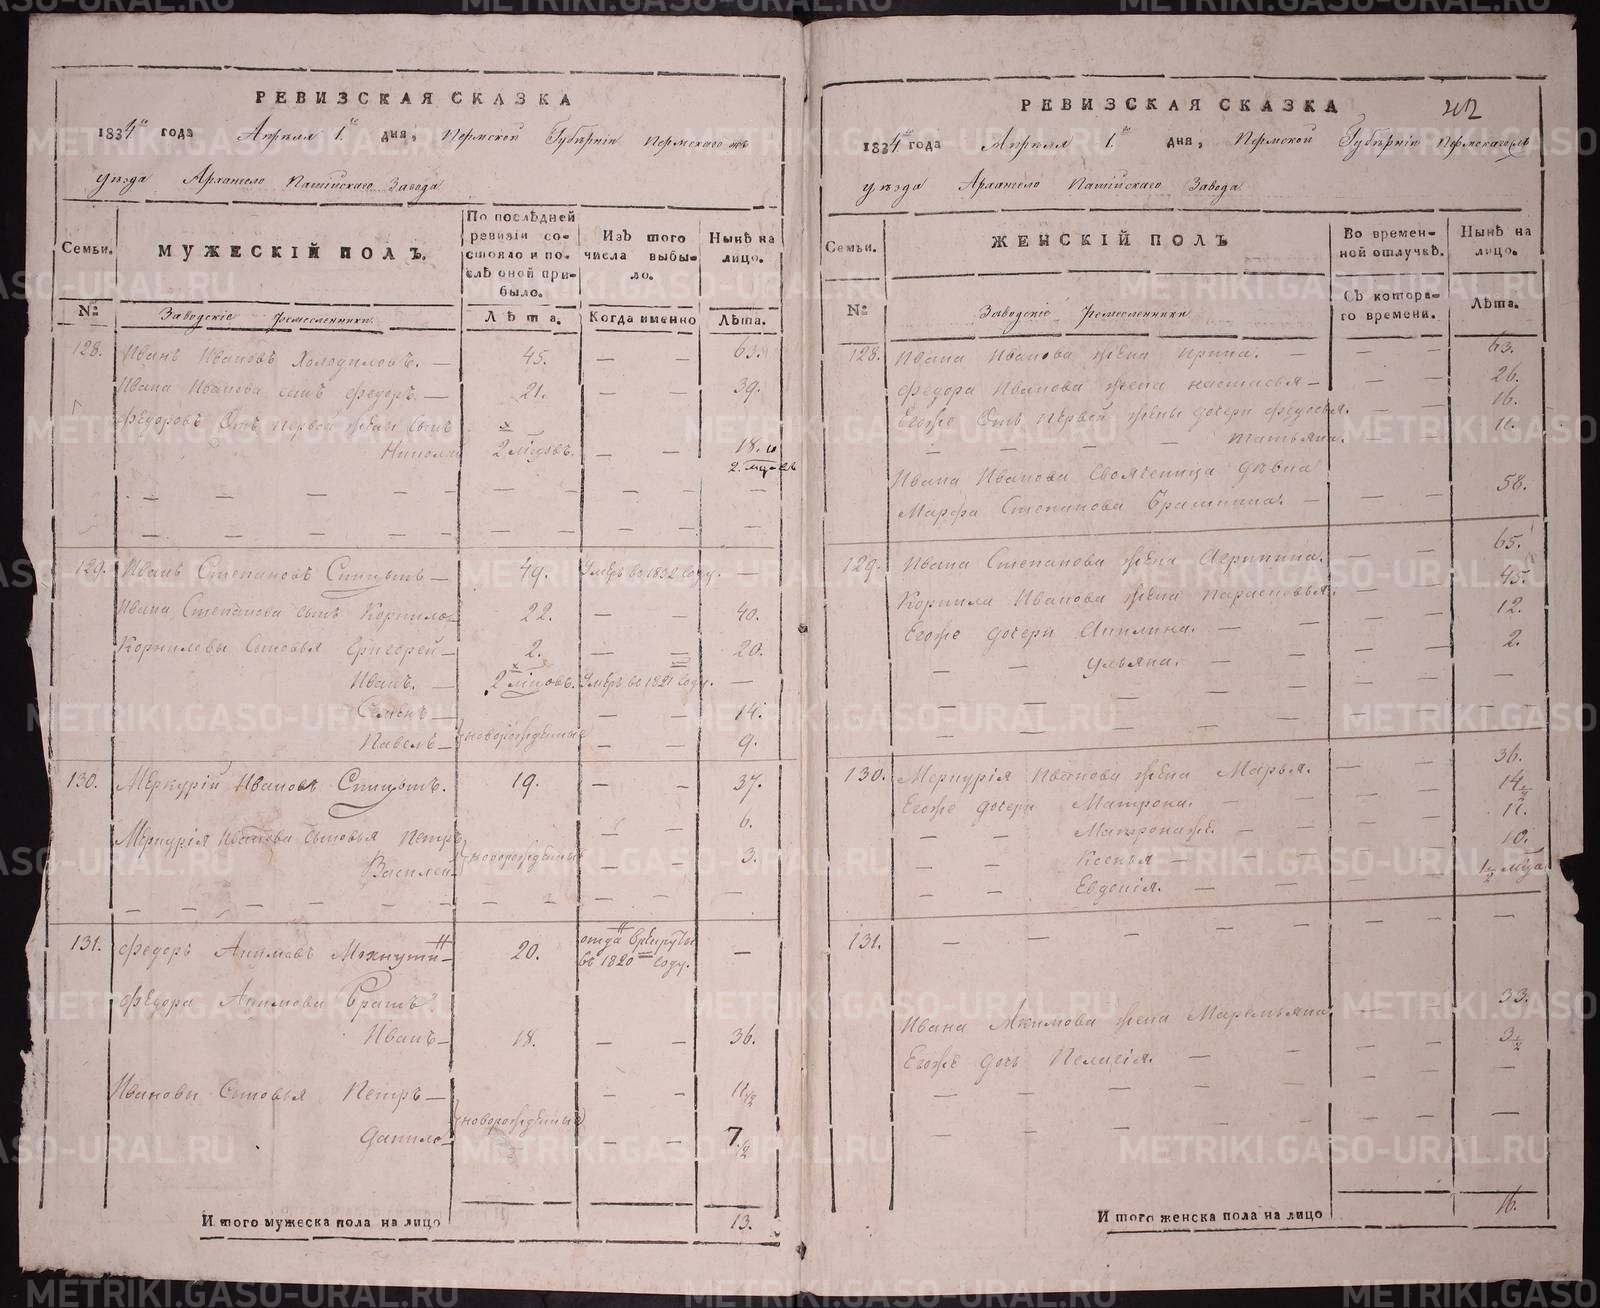 РЕВИЗСКАЯ СКАЗКА
1834 года Апреля 1 дня, Пермской Губерніи Пермскаго
уѣзда Архангело Пашійскаго Завода
Семьи.
МУЖЕСКІЙ ПОЛЪ.
По послѣдней ревизіи состояло и послѣ оной прибыло.
Изъ того числа выбыло.
Нынѣ на лицо.
№
Заводскіе ремесленники.
Лѣта.
Когда именно
Лѣта.
128. Иванъ Ивановъ Холодиловъ. — 45. — — 63.
Ивана Иванова сынъ Федоръ. — 21. — — 39.
Федоровъ Отъ первой жены сынъ
Николай 2 мѣсяцовъ. — — 18. и
129. Иванъ Степановъ Спицынъ — 49. Умеръ въ 1832 году. —
Ивана Степанова сынъ Корнило — 22. — — 40.
Корниловы Сыновья Григорей — 2. — — 20.
Иванъ. — 2 мѣсяцовъ. Умеръ въ 1821 году. —
Семенъ — новорожденные — — 14.
Павелъ — — — 9.
130. Меркурій Ивановъ Спицынъ. 19. — — 37.
Меркурія Иванова сыновья Петръ — — 6.
Василей новорожденные — — 3.
131. Федоръ Акимовъ Мехнутин — 20. отда врекруты —
въ 1820 году.
Федора Акимова Братъ
Иванъ — 18. — — 36.
Ивановы Сыновья Петръ — — — 11 1/2
новорожденные
Данило — — — 7 1/2
Итого мужеска пола на лицо 13.
РЕВИЗСКАЯ СКАЗКА
1834 года Апреля 1 дня, Пермской Губерніи Пермскаго
уѣзда Архангело Пашійскаго Завода
Семьи.
ЖЕНСКІЙ ПОЛЪ
Во временной отлучкѣ.
Нынѣ на лицо.
№
Заводскіе ремесленники
Съ котораго времени.
Лѣта.
128. Ивана Иванова жена Ирина. — — — 63.
Федора Иванова жена Настасья — — — 26.
Егоже Отъ первой жены дочери Федосья. — — 16.
— — — Татьяна. — — 11.
Ивана Иванова Своячення девка
Марфа Степанова Братшина. — — — 58.
129. Ивана Степанова жена Агрипина. — — 65.
Корнила Иванова жена Парасковья. — — 45.
Егоже дочери Акилина. — — — 12.
— — Ульяна. — — — 2.
130. Меркурія Иванова жена Марья. — — 36.
Егоже дочери Матрона. — — — 14 1/2
— — Матронаже. — — — 12.
— — Ксенья — — — 10.
— — Евдокія. — — — 1 1/2 мѣсяца
131. — — — — — — —
Ивана Акимова жена Маремьяна. — 33.
Егоже дочь Пелагія. — — — 3 1/2
Итого женска пола на лицо 16.
METRIKI.GASO-URAL.RU